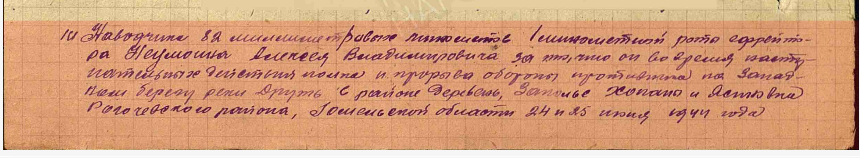 10 Наводчика 82 миллиметровых минометов 1 минометной роты ефрейто-
ра Неумоина Алексея Владимировича за то, что он во время насту-
пательных действий полка и прорыва обороны противника на запад-
ном берегу реки Друть в районе деревень, Заполье Хопаны и
Рогачевского района, Гомельской области 24 и 25 июня 1944 года